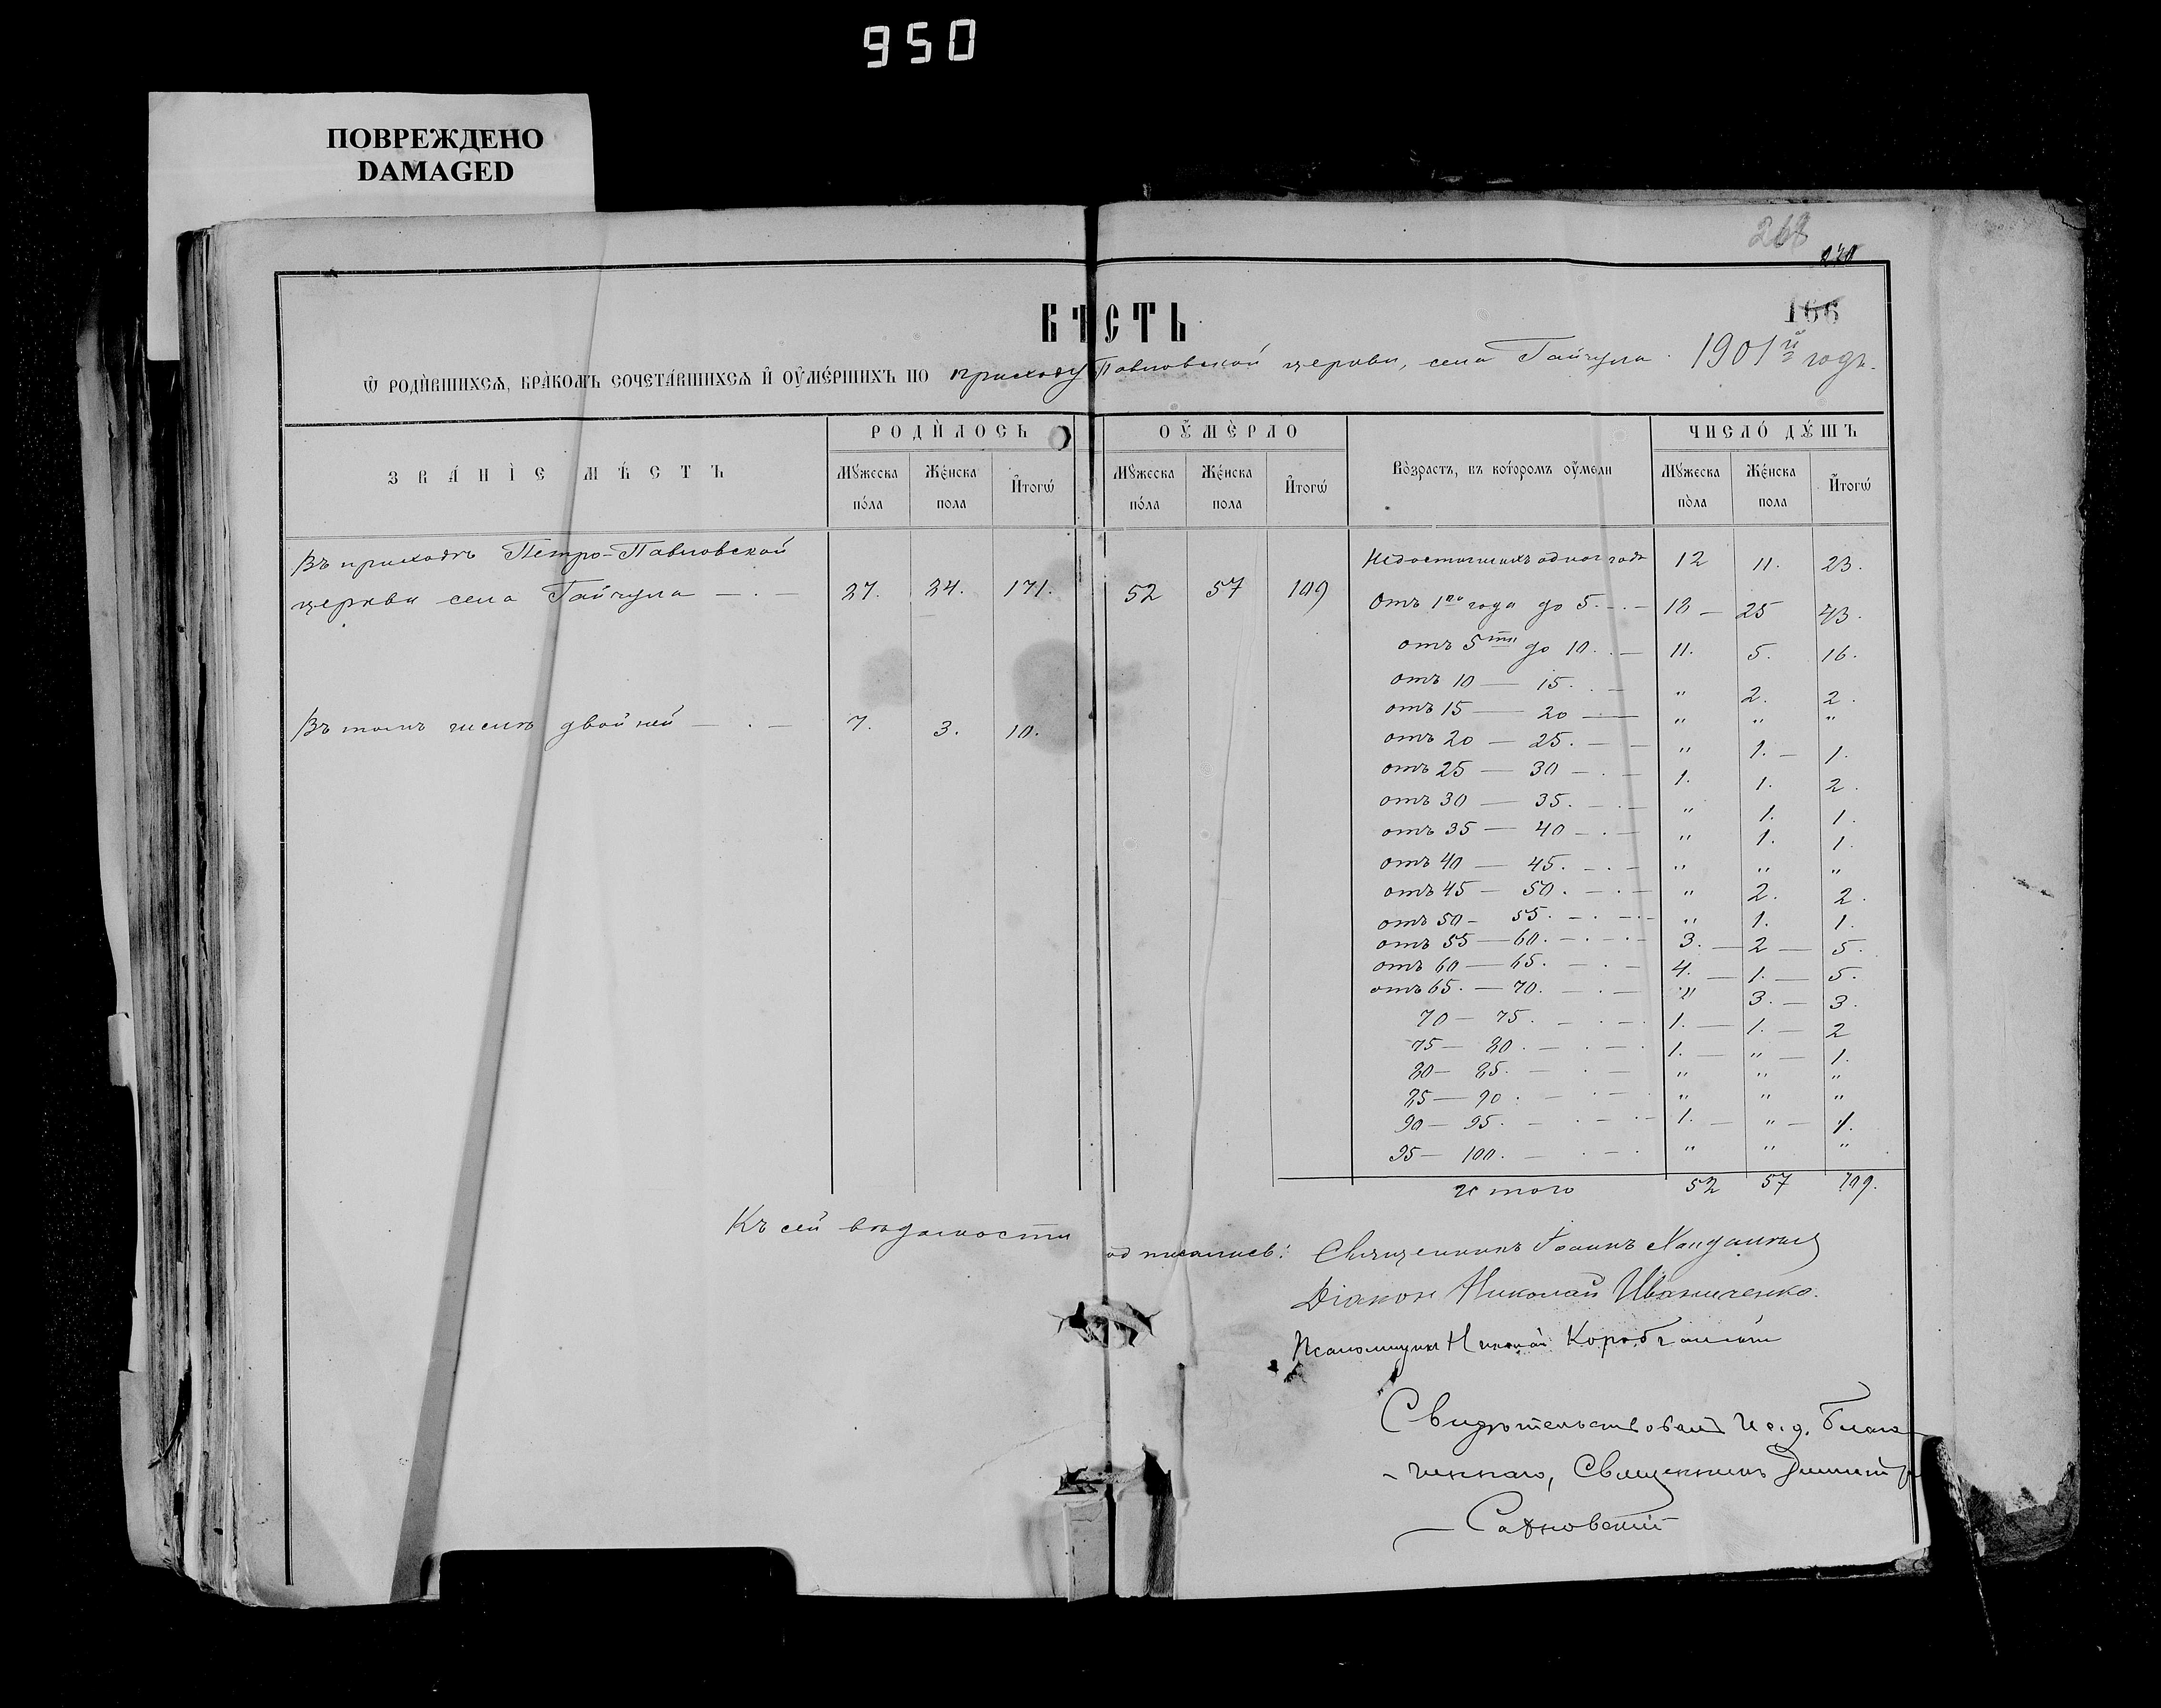 950
ПОВРЕЖДЕНО
DAMAGED
268
270
166
ВѢСТЬ
Ѡ РОДИВШИХСЯ, БРАКОМЪ СОЧЕТАВШИХСЯ И ОУМЕРШИХЪ ПО приходу Павловской церкви, села Гайчула. 1901й годъ.
ЗВАНІЕ МѢСТЪ
РОДИЛОСЬ
ОУМЕРЛО
Возрастъ, въ которомъ оумели
ЧИСЛО ДУШЪ
Мужеска пола Женска пола Итогѡ Мужеска пола Женска пола Итогѡ Мужеска пола Женска пола Итогѡ
Въ приходѣ Петро-Павловской
церкви села Гайчула — . — 87. 84. 171. 52 57 109
Недостигшихъ одного года 12 11. 23.
Отъ 1го года до 5. — . — 18 — 25 43.
отъ 5ти до 10. . — 11. 5. 16.
отъ 10 — 15. . — " 2. 2.
отъ 15 — 20 — " " "
Въ томъ числѣ двойней — . — 7. 3. 10.
отъ 20 — 25. — " 1. — 1.
отъ 25 — 30 — . — 1. 1. 2.
отъ 30 — 35. — . — " 1. 1.
отъ 35 — 40 — . — " 1. 1.
отъ 40 — 45. — . — " " "
отъ 45 — 50. — . — " 2. 2.
отъ 50 — 55. — . — " 1. 1.
отъ 55 — 60. — . — 3. — 2 — 5.
отъ 60 — 65. — . — 4. — 1. — 5.
отъ 65. — 70. — . — " 3. — 3.
70 — 75. — . — 1. — 1. — 2
75 — 80. — . — 1. — " — 1.
80 — 85. — . — " " "
85 — 90. — . — " " "
90 — 95. — . — 1. — " — 1.
95 — 100. — . — " " "
Итого 52 57 109.
Къ сей вѣдомости подписались: Священникъ Іоаннъ
Діаконъ Николай Иваниченко.
Псаломщикъ Николай
Свидѣтельствовалъ И. д. Благо-
чиннаго, Священникъ Димитр
Садковскій